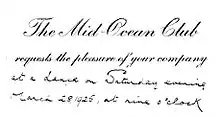 The Mid-Ocean Club
requests the pleasure of your company
at a Dance on Saturday evening
March 28 1925, at nine o'clock